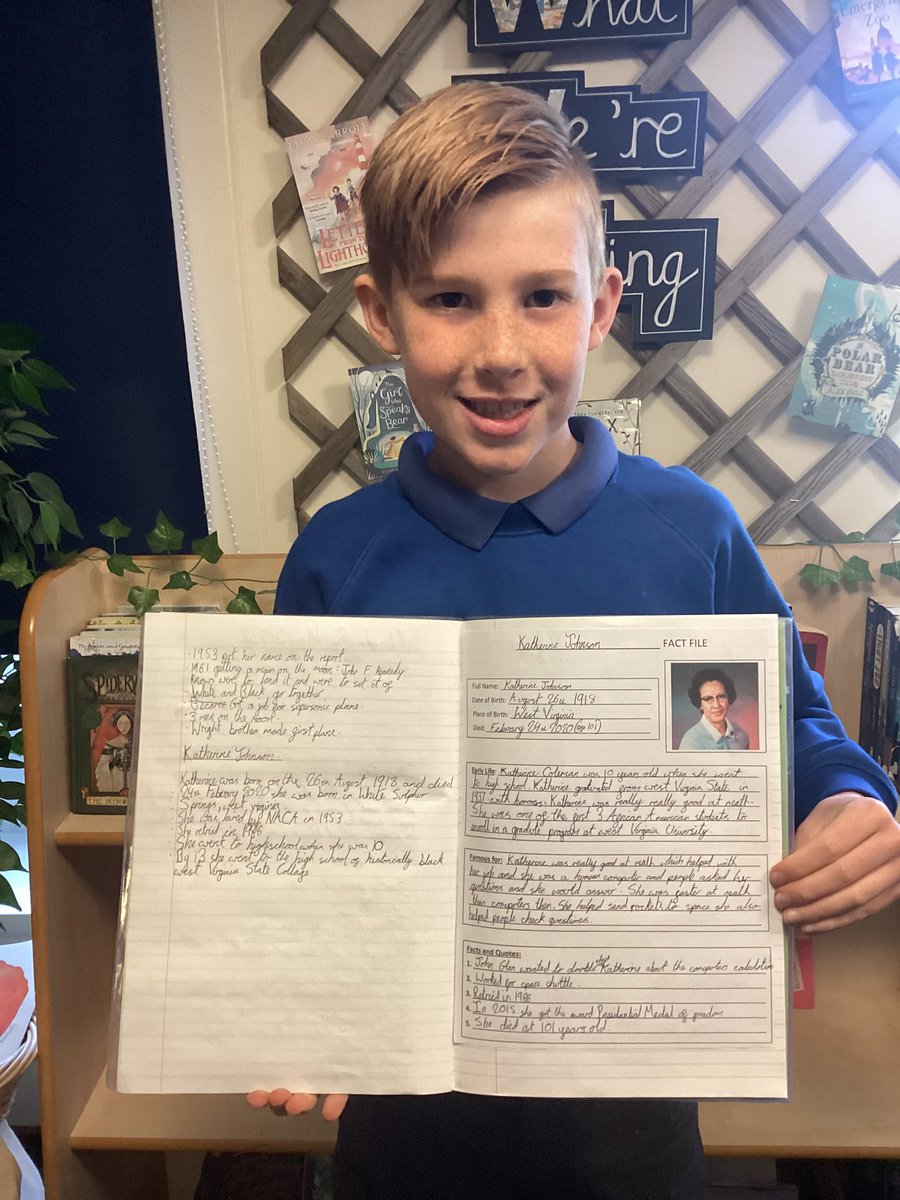 What
We're
ing
Emergency
Zoo
EMMA CARROLL
LETTERS
FROM THE
LIGHTHOUSE
The
Girl
who
Speaks
Bear
POLAR
BEAR
SPIDERW
THE IRONW
· 1953 put her name on the report.
· 1961 getting a man on the moon : John F Kennedy
White and Black go together
· Became of a job for supersonic plane.
· 3 men on the moon
· Wright brothers made first plane.
Katherine Johnson.
Katherine was born on the 26th August 1918 and died
24th Febuary 2020 she was born in White Sulphur
Springs, west virginia
She was hired by NACA in 1953
She retired in 1986
She went to highschool when she was 10
· By 13 she went to the high school of historically black
west Virginia State Collage
Katherine Johnson FACT FILE
Full Name: Katherine Johnson
Date of Birth: August 26th 1918
Place of Birth: West Virginia
Died: February 24th 2020 (age 101)
Early Life: Katherine Coleman was 10 year old when she went
to high school Katherine graduated from west Virginia State in
1937 with honours. Katherine was really really good at math.
She was one of the first 3 African American students to
enroll in a graduate program at west Virginia University
Famous for: Katherine was really good at math which helped with
her job and she was a human computer and people asked her
questions and she would answer. She was faster at math
then computers then. She helped send rockets to space she also
helped people check questions.
Facts and Quotes:
1. John Glen wanted to double chek Katherine about the computers calculation
2. Worked for space shuttle.
3. Retried in 1986
4. In 2015 she got the award Presidential Medal of freedom
5. She died at 101 years old